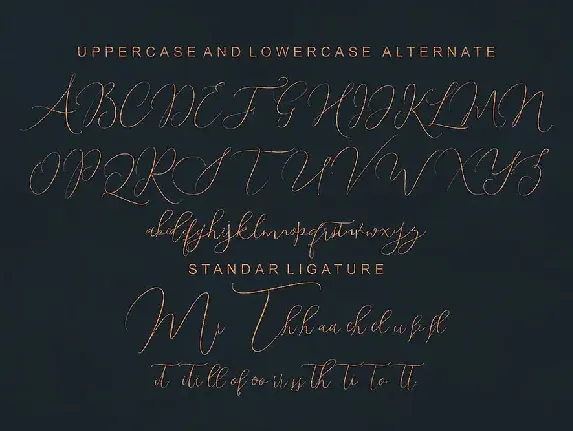 UPPERCASE AND LOWERCASE ALTERNATE
ABCDEFGHIJKLMN
OPQRSTUVWXYZ
abcdefghijklmnopqrstuvwxyz
STANDAR LIGATURE
Mr Th h aa ch cl
it ll of oo ss th Ti To tt